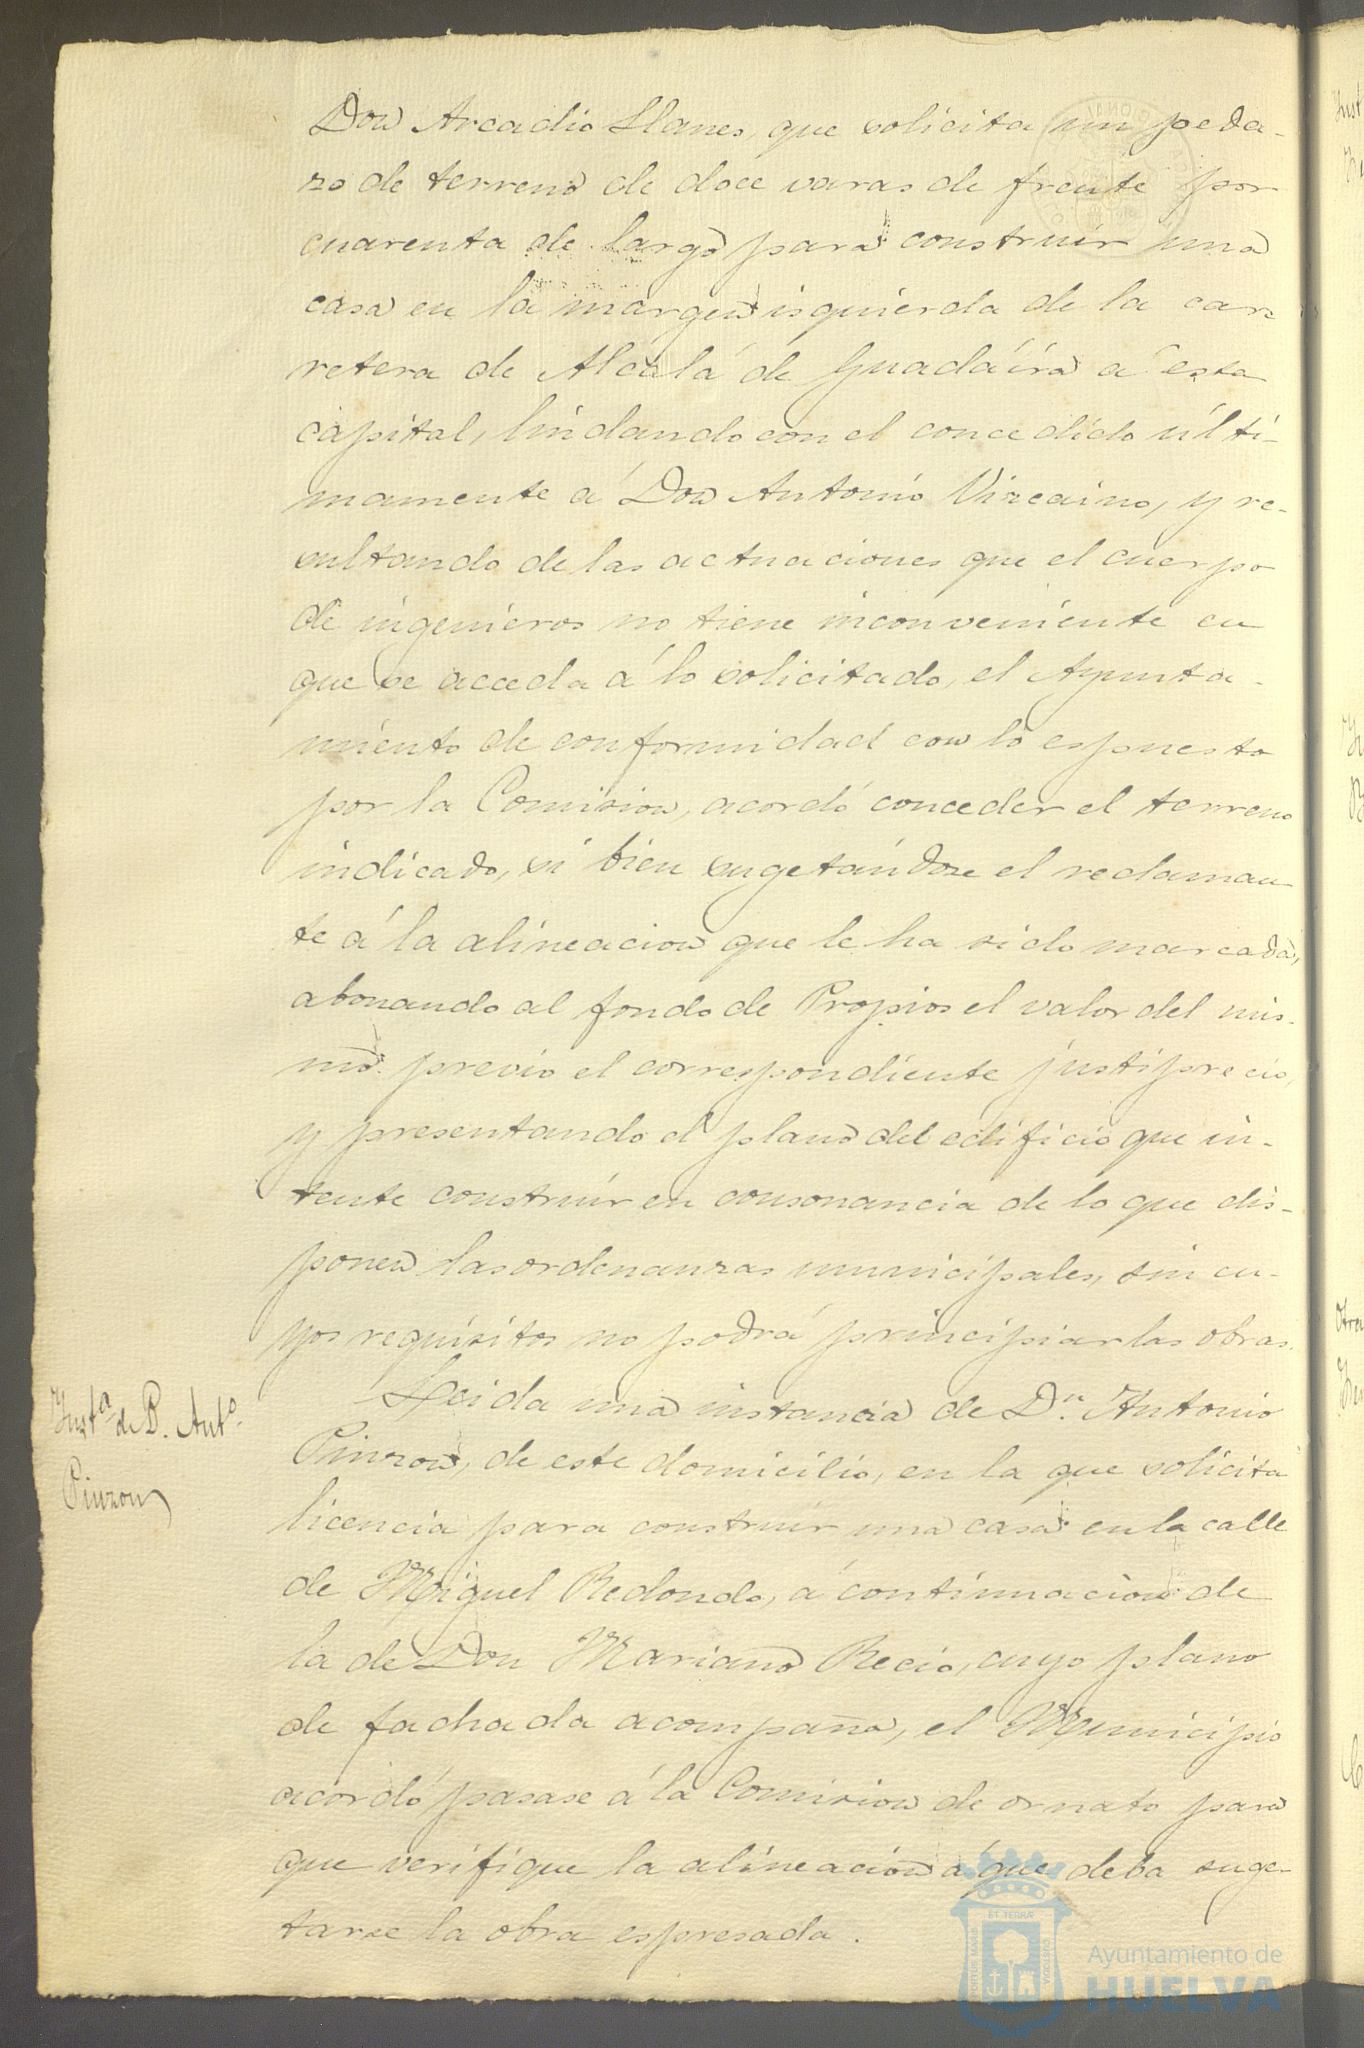 Don Arcadio Llanes, que solicita un peda-
zo de terreno de doce varas de frente por
cuarenta de largo para construir una
casa en la margen isquierda de la car
retera de Alcalá de Guadáira á esta
capital, lindando con el concedido últi-
mamente á Don Antonio Vizcaino, y re-
sultando de las actuaciones que el cuerpo
de ingenieros no tiene inconveniente en
que se acceda á lo solicitado, el Ayunta-
miento de conformidad con lo espuesto
por la Comision, acordó conceder el terreno
indicado, si bien sugetándose el reclaman
te á la alineacion que le ha sido marcada,
abonando al fondo de Propios el valor del mis-
mo previo el correspondiente justiprecio,
y presentando el plano del edificio que in-
tente construir en consonancia de lo que dis-
ponen las ordenanzas municipales, sin cu-
yos requisitos no podrá principiar las obras.
Insta de D. Anto.
Pinzon
Leida una instancia de Dn. Antonio
Pinzon, de este domicilio, en la que solicita
licencia para construir una casa en la calle
de Miguel Redondo, á continuacion de
la de Don Mariano Recio, cuyo plano
de fachada acompaña, el Municipio
acordó pasase á la Comision de ornato para
que verifique la alineacion á que deba suge-
tarse la obra espresada.
ET TERRÆ
PORTUS MARIS
CUSTODIA
Ayuntamiento de
HUELVA